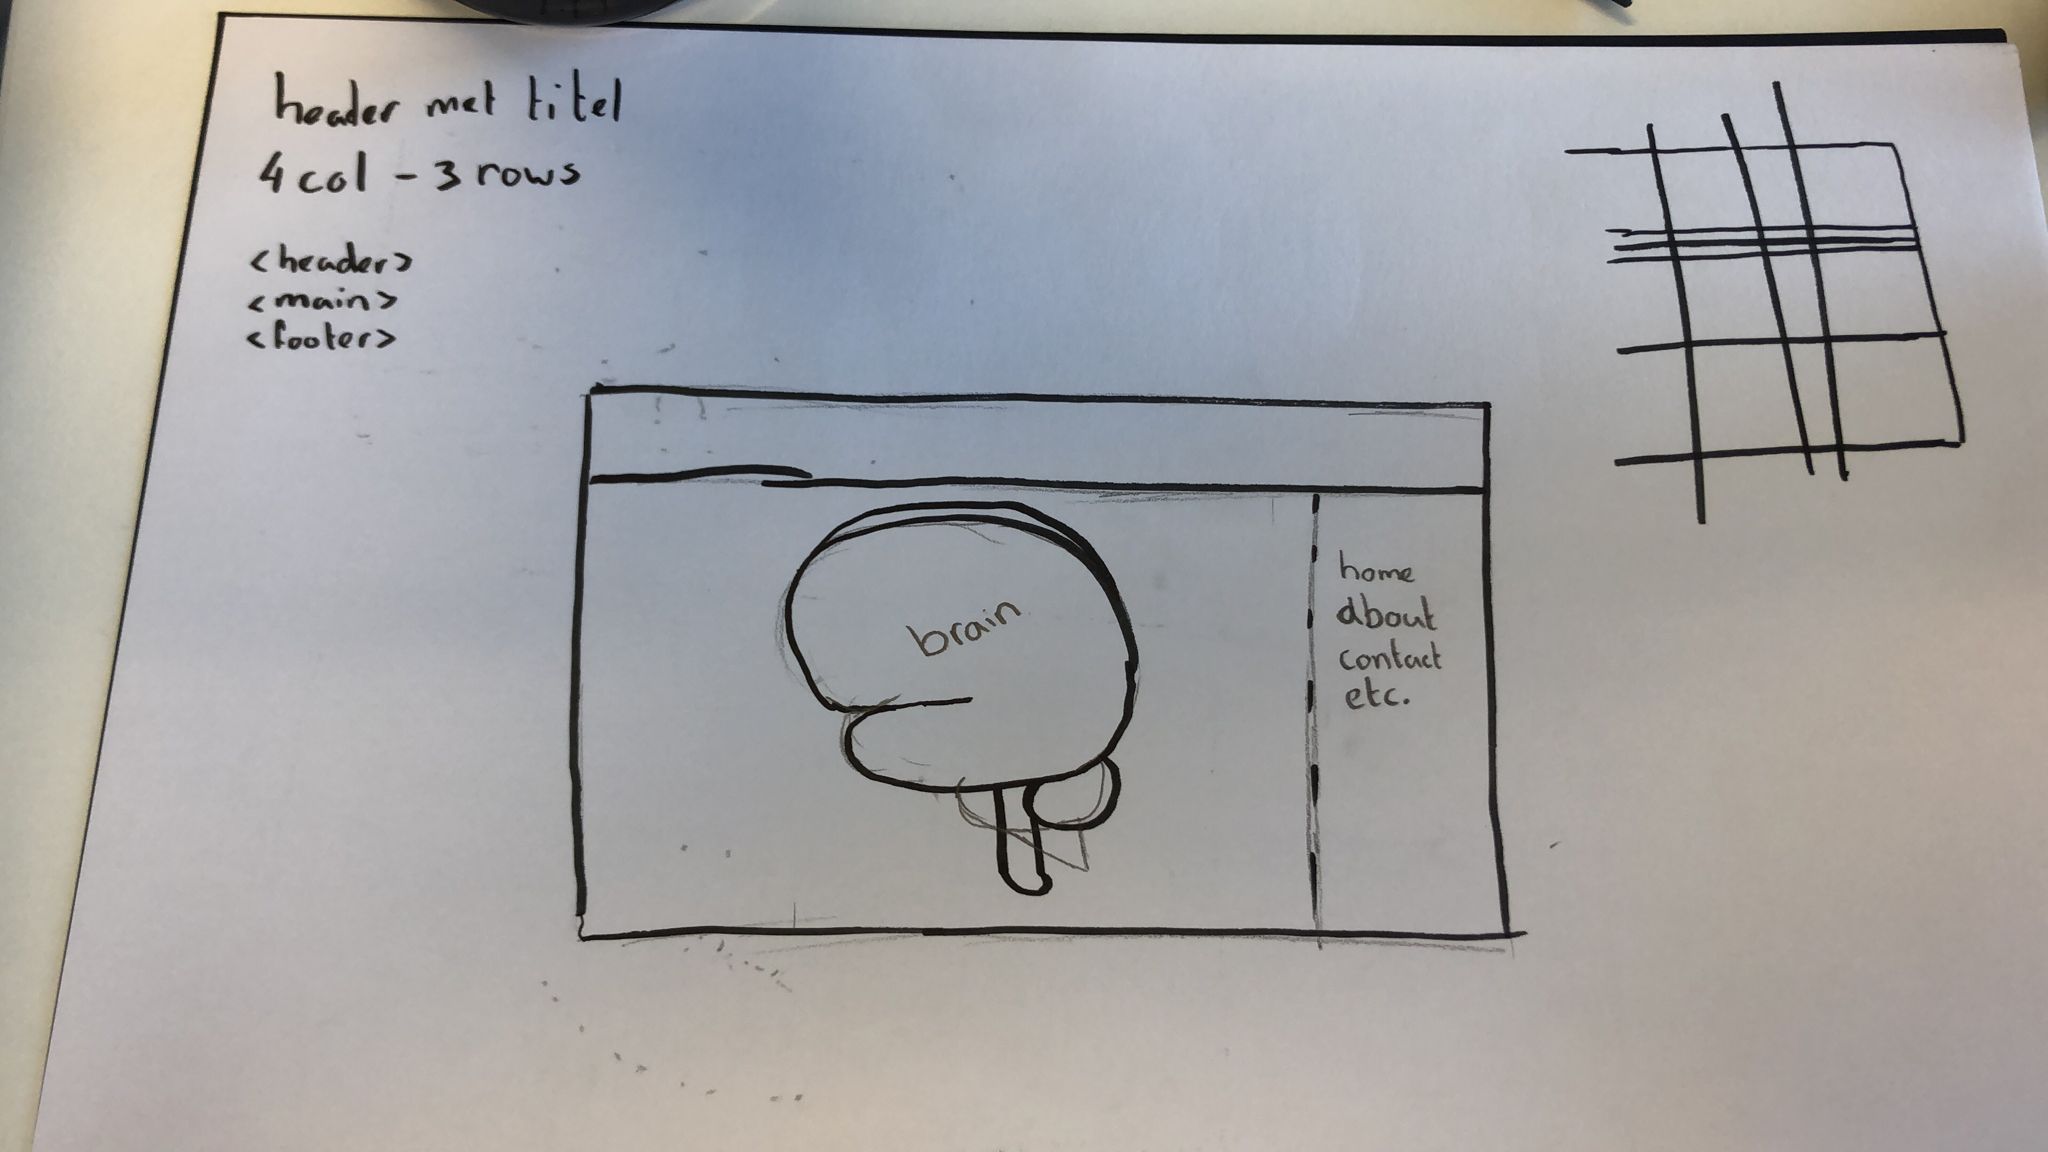 header met titel
4 col - 3 rows
<header>
<main>
<footer>
brain
home
about
contact
etc.